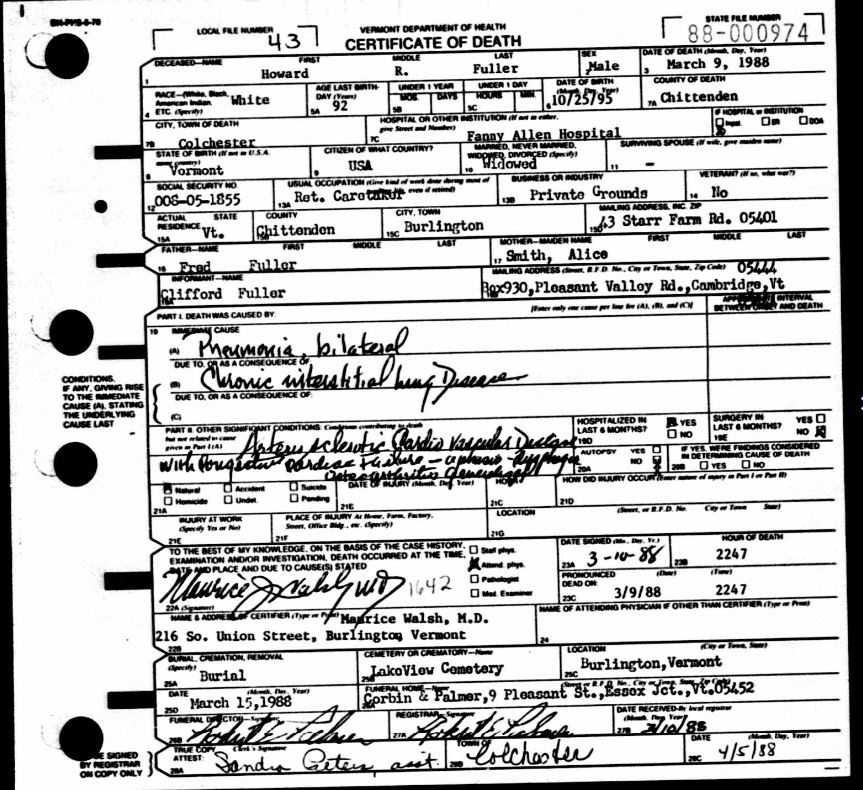 LOCAL FILE NUMBER
43
VERMONT DEPARTMENT OF HEALTH
CERTIFICATE OF DEATH
STATE FILE NUMBER
88-000974
DECEASED—NAME FIRST MIDDLE LAST SEX DATE OF DEATH (Month, Day, Year)
1 Howard R. Fuller 2 Male 3 March 9, 1988
RACE—(White, Black, American Indian, ETC. (Specify) AGE LAST BIRTHDAY (Years) UNDER 1 YEAR UNDER 1 DAY DATE OF BIRTH (Month, Day, Year) COUNTY OF DEATH
4 White 5A 92 5B MOS. DAYS 5C HOURS MIN. 6 10/25/95 7A Chittenden
CITY, TOWN OF DEATH HOSPITAL OR OTHER INSTITUTION (If not in either, give Street and Number) IF HOSPITAL or INSTITUTION
7B Colchester 7C Fanny Allen Hospital Inpat. ER DOA
STATE OF BIRTH (If not in U.S.A. name country) CITIZEN OF WHAT COUNTRY? MARRIED, NEVER MARRIED, WIDOWED, DIVORCED (Specify) SURVIVING SPOUSE (If wife, give maiden name)
8 Vermont 9 USA 10 Widowed 11 -
SOCIAL SECURITY NO USUAL OCCUPATION (Give kind of work done during most of life, even if retired) BUSINESS OR INDUSTRY VETERAN? (If so, what war?)
12 008-05-1855 13A Ret. Caretaker 13B Private Grounds 14 No
ACTUAL RESIDENCE STATE COUNTY CITY, TOWN MAILING ADDRESS, INC. ZIP
15A Vt. 15B Chittenden 15C Burlington 15D 43 Starr Farm Rd. 05401
FATHER—NAME FIRST MIDDLE LAST MOTHER—MAIDEN NAME FIRST MIDDLE LAST
16 Fred Fuller 17 Smith, Alice
INFORMANT—NAME MAILING ADDRESS (Street, R.F.D. No., City or Town, State, Zip Code) 05444
Clifford Fuller Box930,Pleasant Valley Rd.,Cambridge,Vt
PART I. DEATH WAS CAUSED BY: [Enter only one cause per line for (A), (B), and (C)] INTERVAL BETWEEN ONSET AND DEATH
19 IMMEDIATE CAUSE
(A) Pneumonia, bilateral
DUE TO, OR AS A CONSEQUENCE OF:
(B) Chronic interstitial lung Disease
DUE TO, OR AS A CONSEQUENCE OF:
(C)
CONDITIONS, IF ANY, GIVING RISE TO THE IMMEDIATE CAUSE (A), STATING THE UNDERLYING CAUSE LAST
PART II. OTHER SIGNIFICANT CONDITIONS: Conditions contributing to death but not related to cause given in Part I (A) HOSPITALIZED IN LAST 6 MONTHS? 19D YES NO SURGERY IN LAST 6 MONTHS? 19E YES NO
Arteriosclerotic Cardio Vascular Disease
With Congestive Cardiac Failure - aphasia - dysphagia
AUTOPSY YES NO 20A IF YES, WERE FINDINGS CONSIDERED IN DETERMINING CAUSE OF DEATH 20B YES NO
Natural Accident Suicide
Homicide Undet. Pending
21A
DATE OF INJURY (Month, Day, Year) HOUR HOW DID INJURY OCCUR? (Enter nature of injury in Part I or Part II)
21C 21D
INJURY AT WORK (Specify Yes or No) PLACE OF INJURY At Home, Farm, Factory, Street, Office Bldg., etc. (Specify) LOCATION (Street, or R.F.D. No. City or Town State)
21E 21F 21G
TO THE BEST OF MY KNOWLEDGE, ON THE BASIS OF THE CASE HISTORY, EXAMINATION AND/OR INVESTIGATION, DEATH OCCURRED AT THE TIME, DATE AND PLACE AND DUE TO CAUSE(S) STATED
Staff phys.
Attend. phys.
Pathologist
Med. Examiner
DATE SIGNED (Mo., Day, Yr.) HOUR OF DEATH
23A 3-10-88 23B 2247
PRONOUNCED DEAD ON: (Date) (Time)
23C 3/9/88 2247
Maurice J Walsh MD 1642
22A (Signature)
NAME & ADDRESS OF CERTIFIER (Type or Print) NAME OF ATTENDING PHYSICIAN IF OTHER THAN CERTIFIER (Type or Print)
Maurice Walsh, M.D.
216 So. Union Street, Burlington Vermont
22B 24
BURIAL, CREMATION, REMOVAL (Specify) CEMETERY OR CREMATORY—Name LOCATION (City or Town, State)
25A Burial 25B LakeView Cemetery 25C Burlington,Vermont
DATE (Month, Day, Year) FUNERAL HOME—Name (Street or R.F.D. No., City or Town, State, Zip Code)
25D March 15,1988 26A Corbin & Palmer,9 Pleasant St.,Essex Jct.,Vt.05452
FUNERAL DIRECTOR—Signature REGISTRAR—Signature DATE RECEIVED—By local registrar (Month, Day, Year)
26B 27A 27B 3/10/88
TO BE SIGNED BY REGISTRAR ON COPY ONLY
TRUE COPY ATTEST: Clerk's Signature TOWN OF DATE (Month, Day, Year)
28A Sandra Peters asst. 28B Colchester 28C 4/5/88